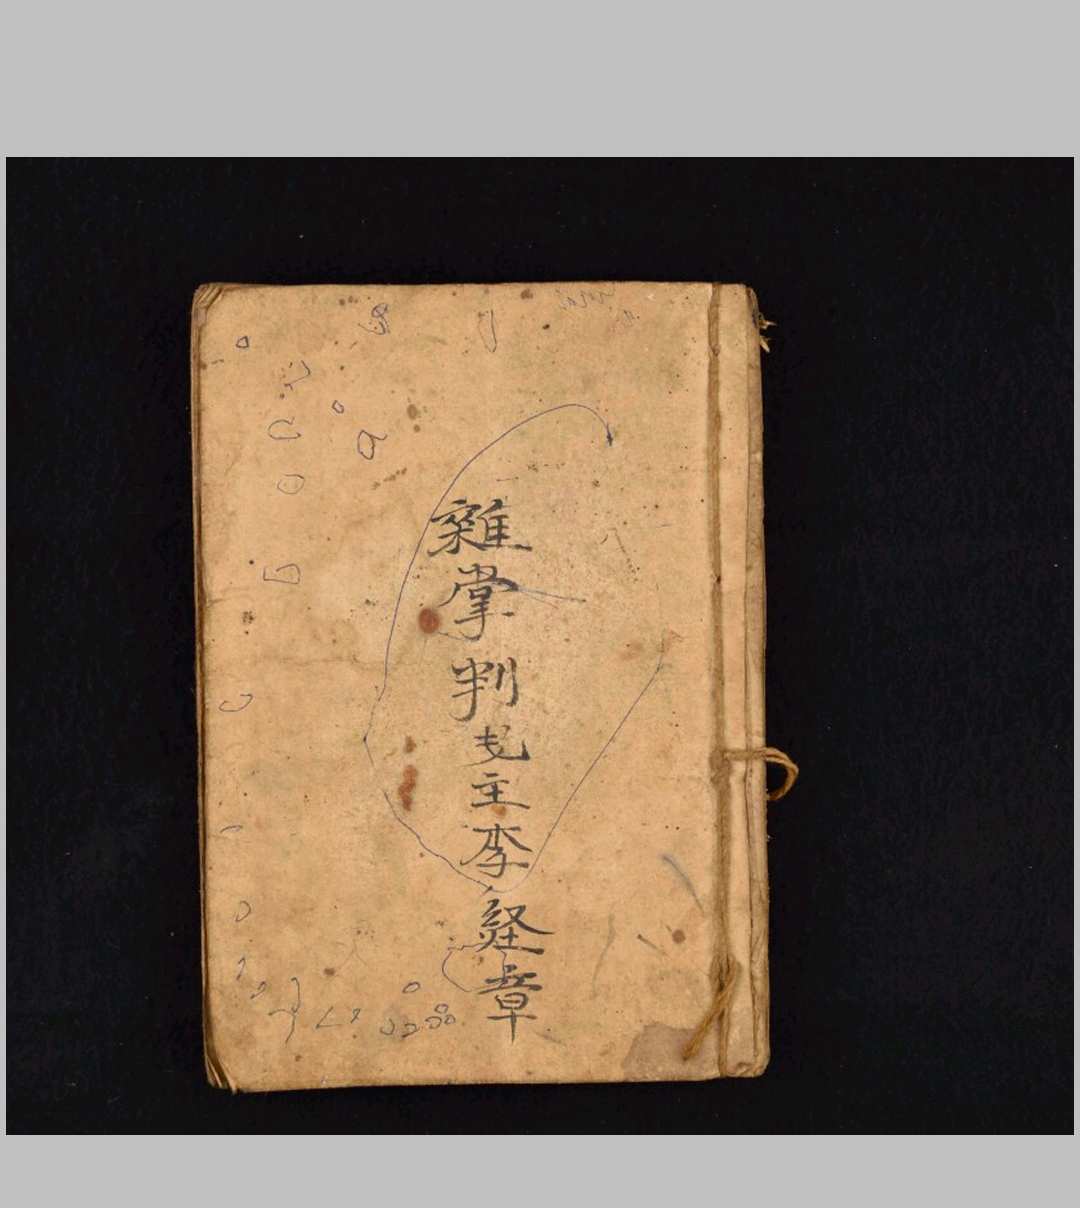 雜掌判㐊主李経章